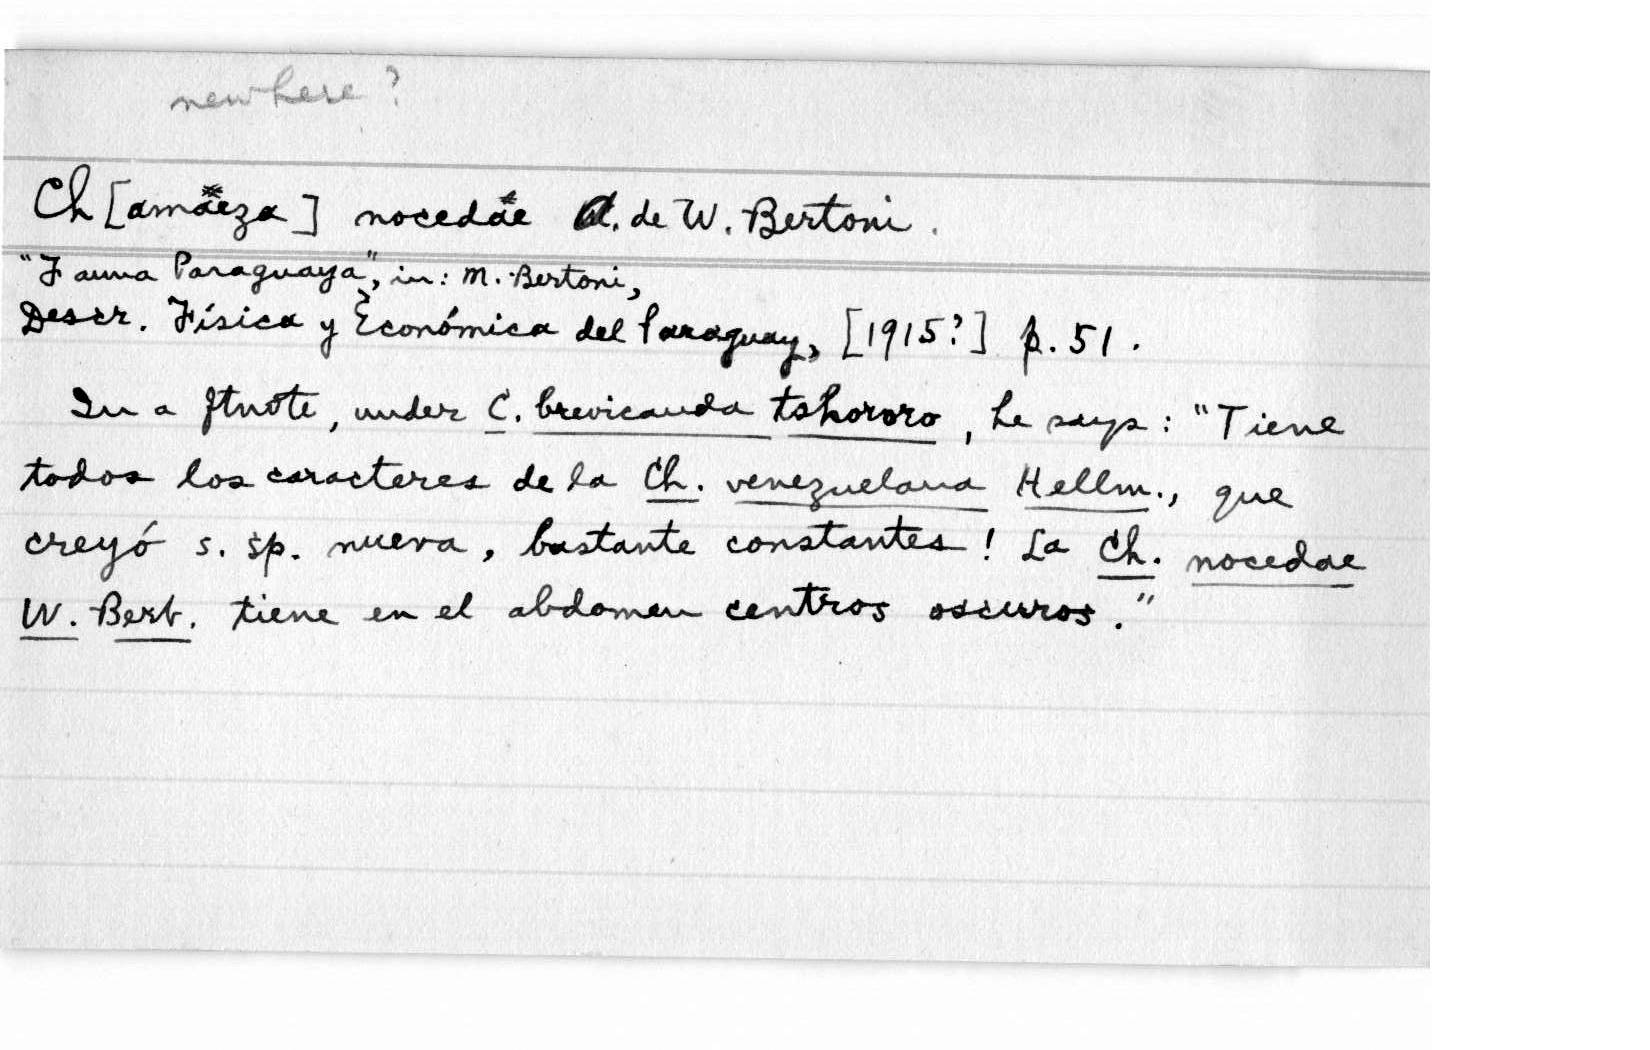 new here?
Ch[amaeza] nocedae A. de W. Bertoni.
"Fauna Paraguaya", in: M. Bertoni,
Descr. Física y Económica del Paraguay, [1915?] p. 51.
In a ftnote, under C. brevicauda tshororo, he says: "Tiene
todos los caracteres de la Ch. venezuelana Hellm., que
creyó s. sp. nueva, bastante constantes! La Ch. nocedae
W. Bert. tiene en el abdomen centros oscuros."